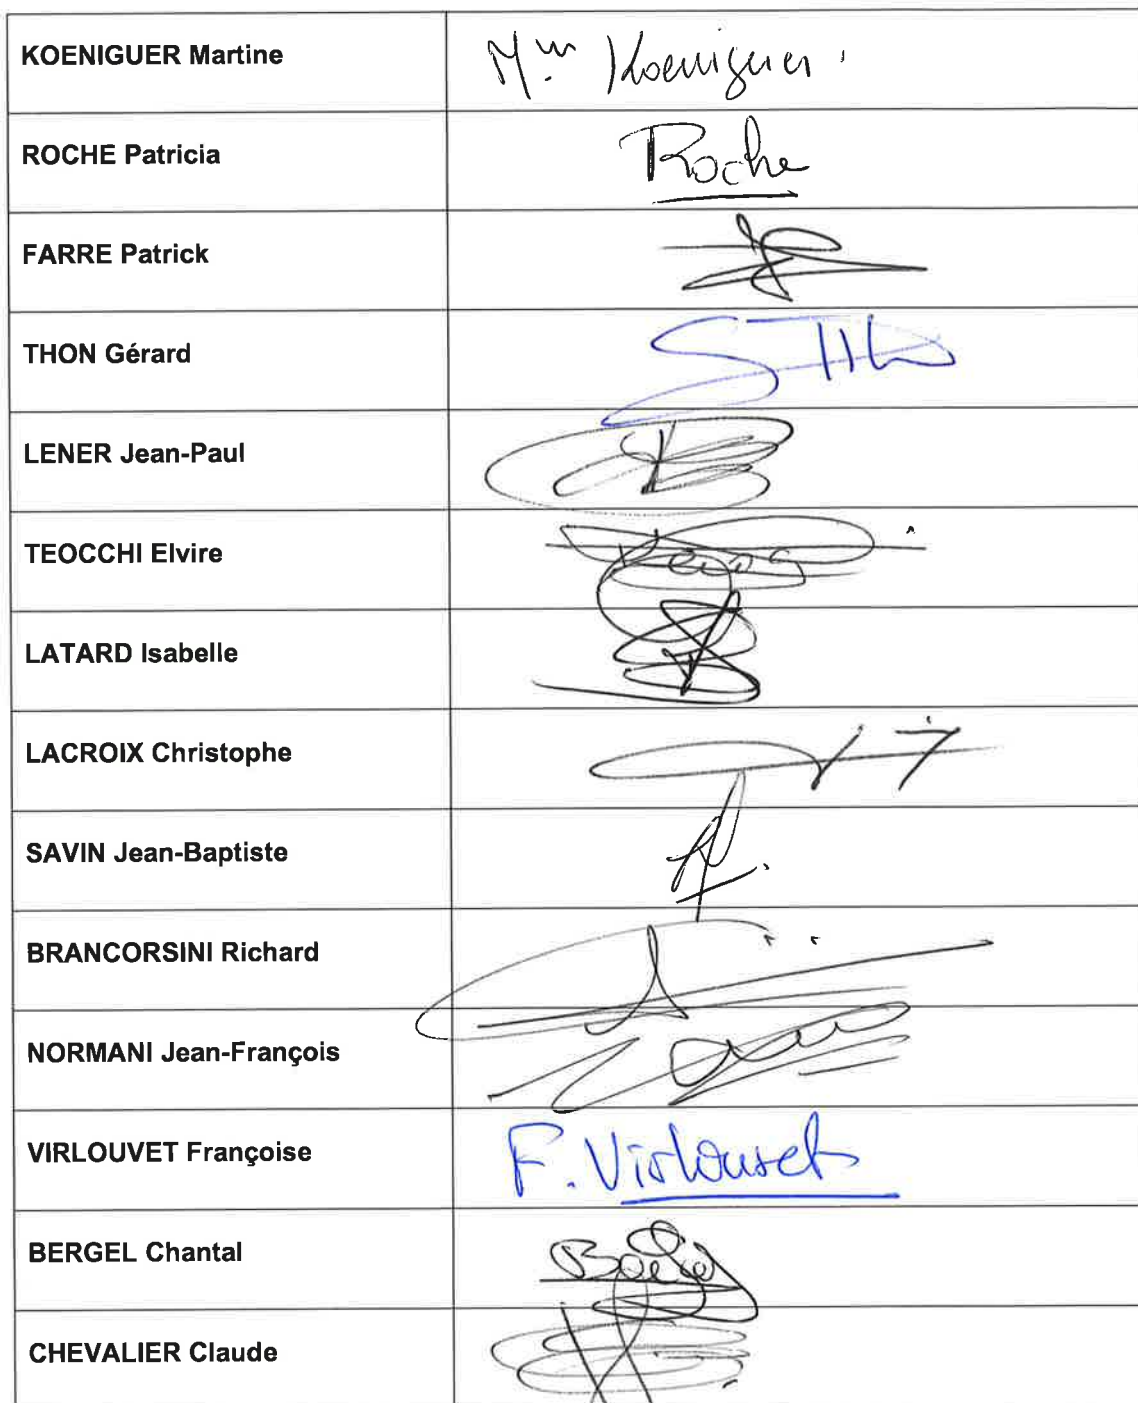 KOENIGUER Martine Mme Koeniguer
ROCHE Patricia Roche
FARRE Patrick
THON Gérard
LENER Jean-Paul
TEOCCHI Elvire
LATARD Isabelle
LACROIX Christophe
SAVIN Jean-Baptiste
BRANCORSINI Richard
NORMANI Jean-François
VIRLOUVET Françoise F. Virlouvet
BERGEL Chantal
CHEVALIER Claude